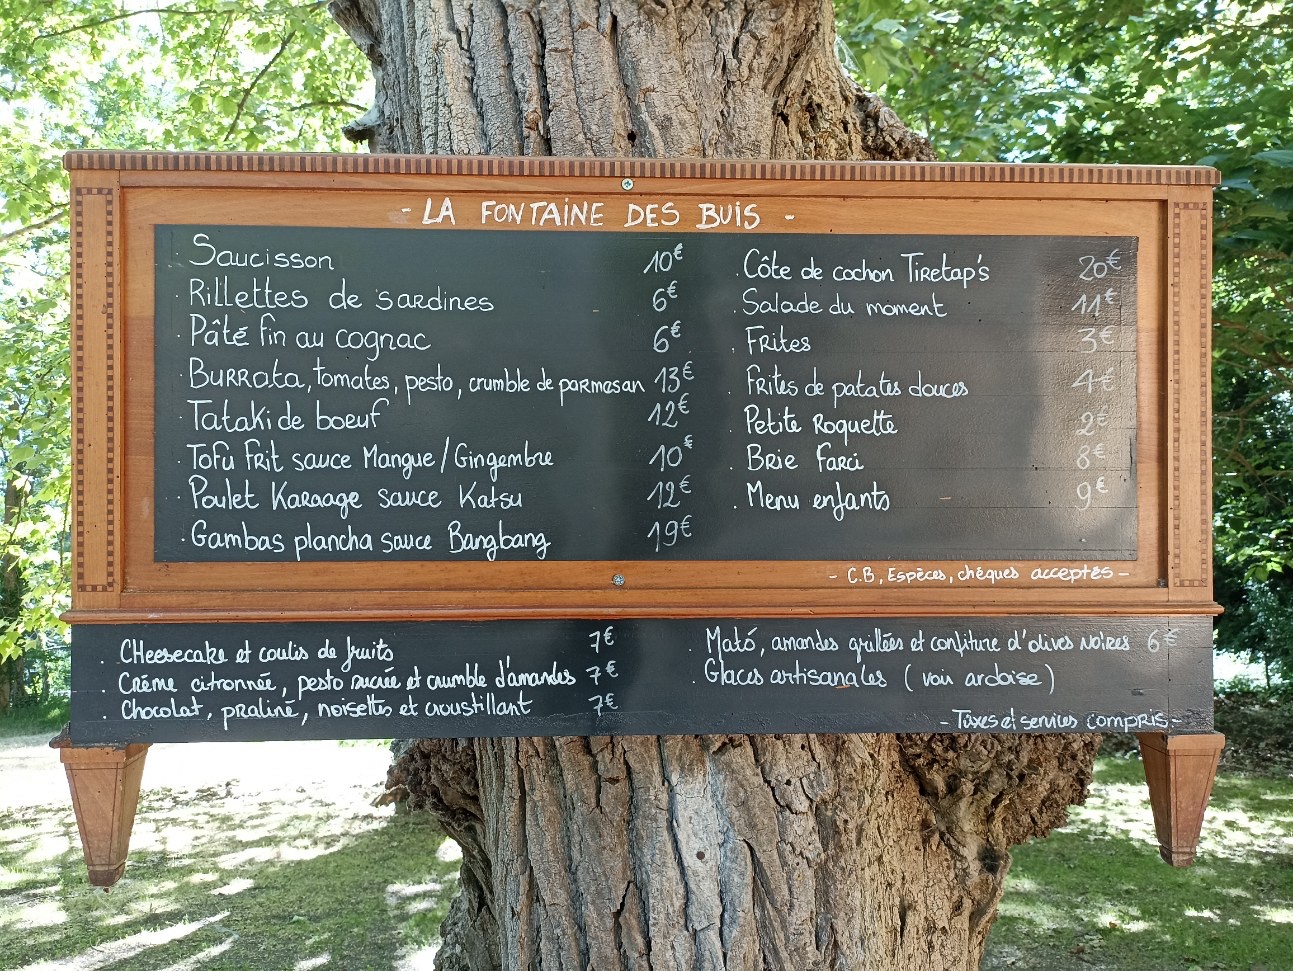 - LA FONTAINE DES BUIS -
. Saucisson 10€
. Rillettes de sardines 6€
. Pâté fin au cognac 6€
. Burrata, tomates, pesto, crumble de parmesan 13€
. Tataki de boeuf 12€
. Tofu frit sauce Mangue / Gingembre 10€
. Poulet Karaage sauce Katsu 12€
. Gambas plancha sauce Bangbang 19€
. Côte de cochon Tiretap's 20€
. Salade du moment 11€
. Frites 3€
. Frites de patates douces 4€
. Petite Roquette 2€
. Brie Farci 8€
. Menu enfants 9€
- C.B, Espèces, chèques acceptés -
. Cheesecake et coulis de fruits 7€
. Crème citronnée, pesto sucrée et crumble d'amandes 7€
. Chocolat, praliné, noisettes et croustillant 7€
. Mató, amandes grillées et confiture d'olives noires 6€
. Glaces artisanales (voir ardoise)
- Taxes et services compris -